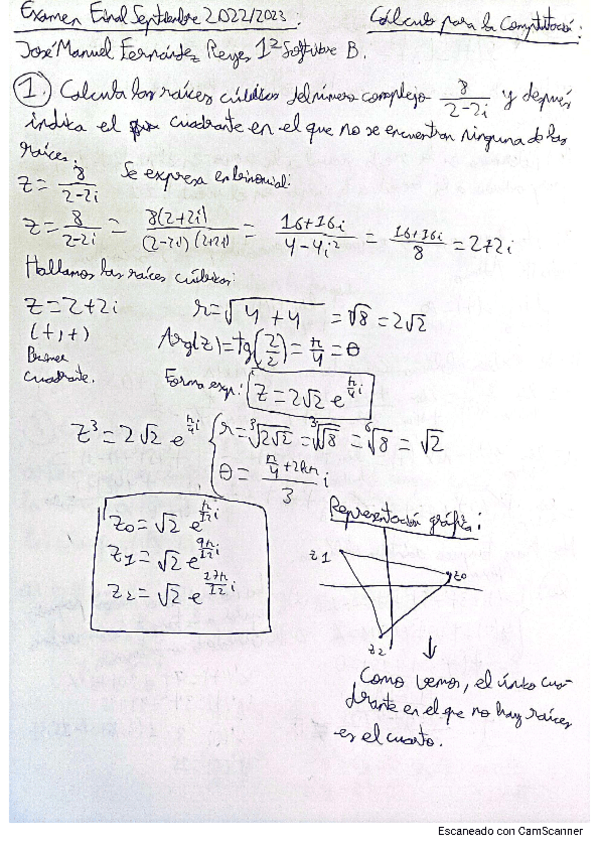 Examen Final Septiembre 2022/2023. Cálculo para la Computación:
José Manuel Fernández Reyes 1º Software B.
1. Calcula las raíces cúbicas del número complejo 8/(2-2i) y después
indica el cuadrante en el que no se encuentran ninguna de las
raíces.
z = 8/(2-2i) Se expresa en binomial:
z = 8/(2-2i) = 8(2+2i)/((2-2i)(2+2i)) = (16+16i)/(4-4i²) = (16+16i)/8 = 2+2i
Hallamos las raíces cúbicas:
z = 2+2i r = √(4+4) = √8 = 2√2
(+,+) Arg(z) = tg(2/2) = π/4 = θ
Primer
cuadrante. Forma exp.: z = 2√2 e^(π/4 i)
z³ = 2√2 e^(π/4 i) { r = ³√(2√2) = ³√(√8) = ⁶√8 = √2
θ = (π/4 + 2kπ)/3 i
Representación gráfica:
z0 = √2 e^(π/12 i)
z1 = √2 e^(9π/12 i)
z2 = √2 e^(17π/12 i)
z1
z0
z2
Como vemos, el único cua-
drante en el que no hay raíces
es el cuarto.
Escaneado con CamScanner